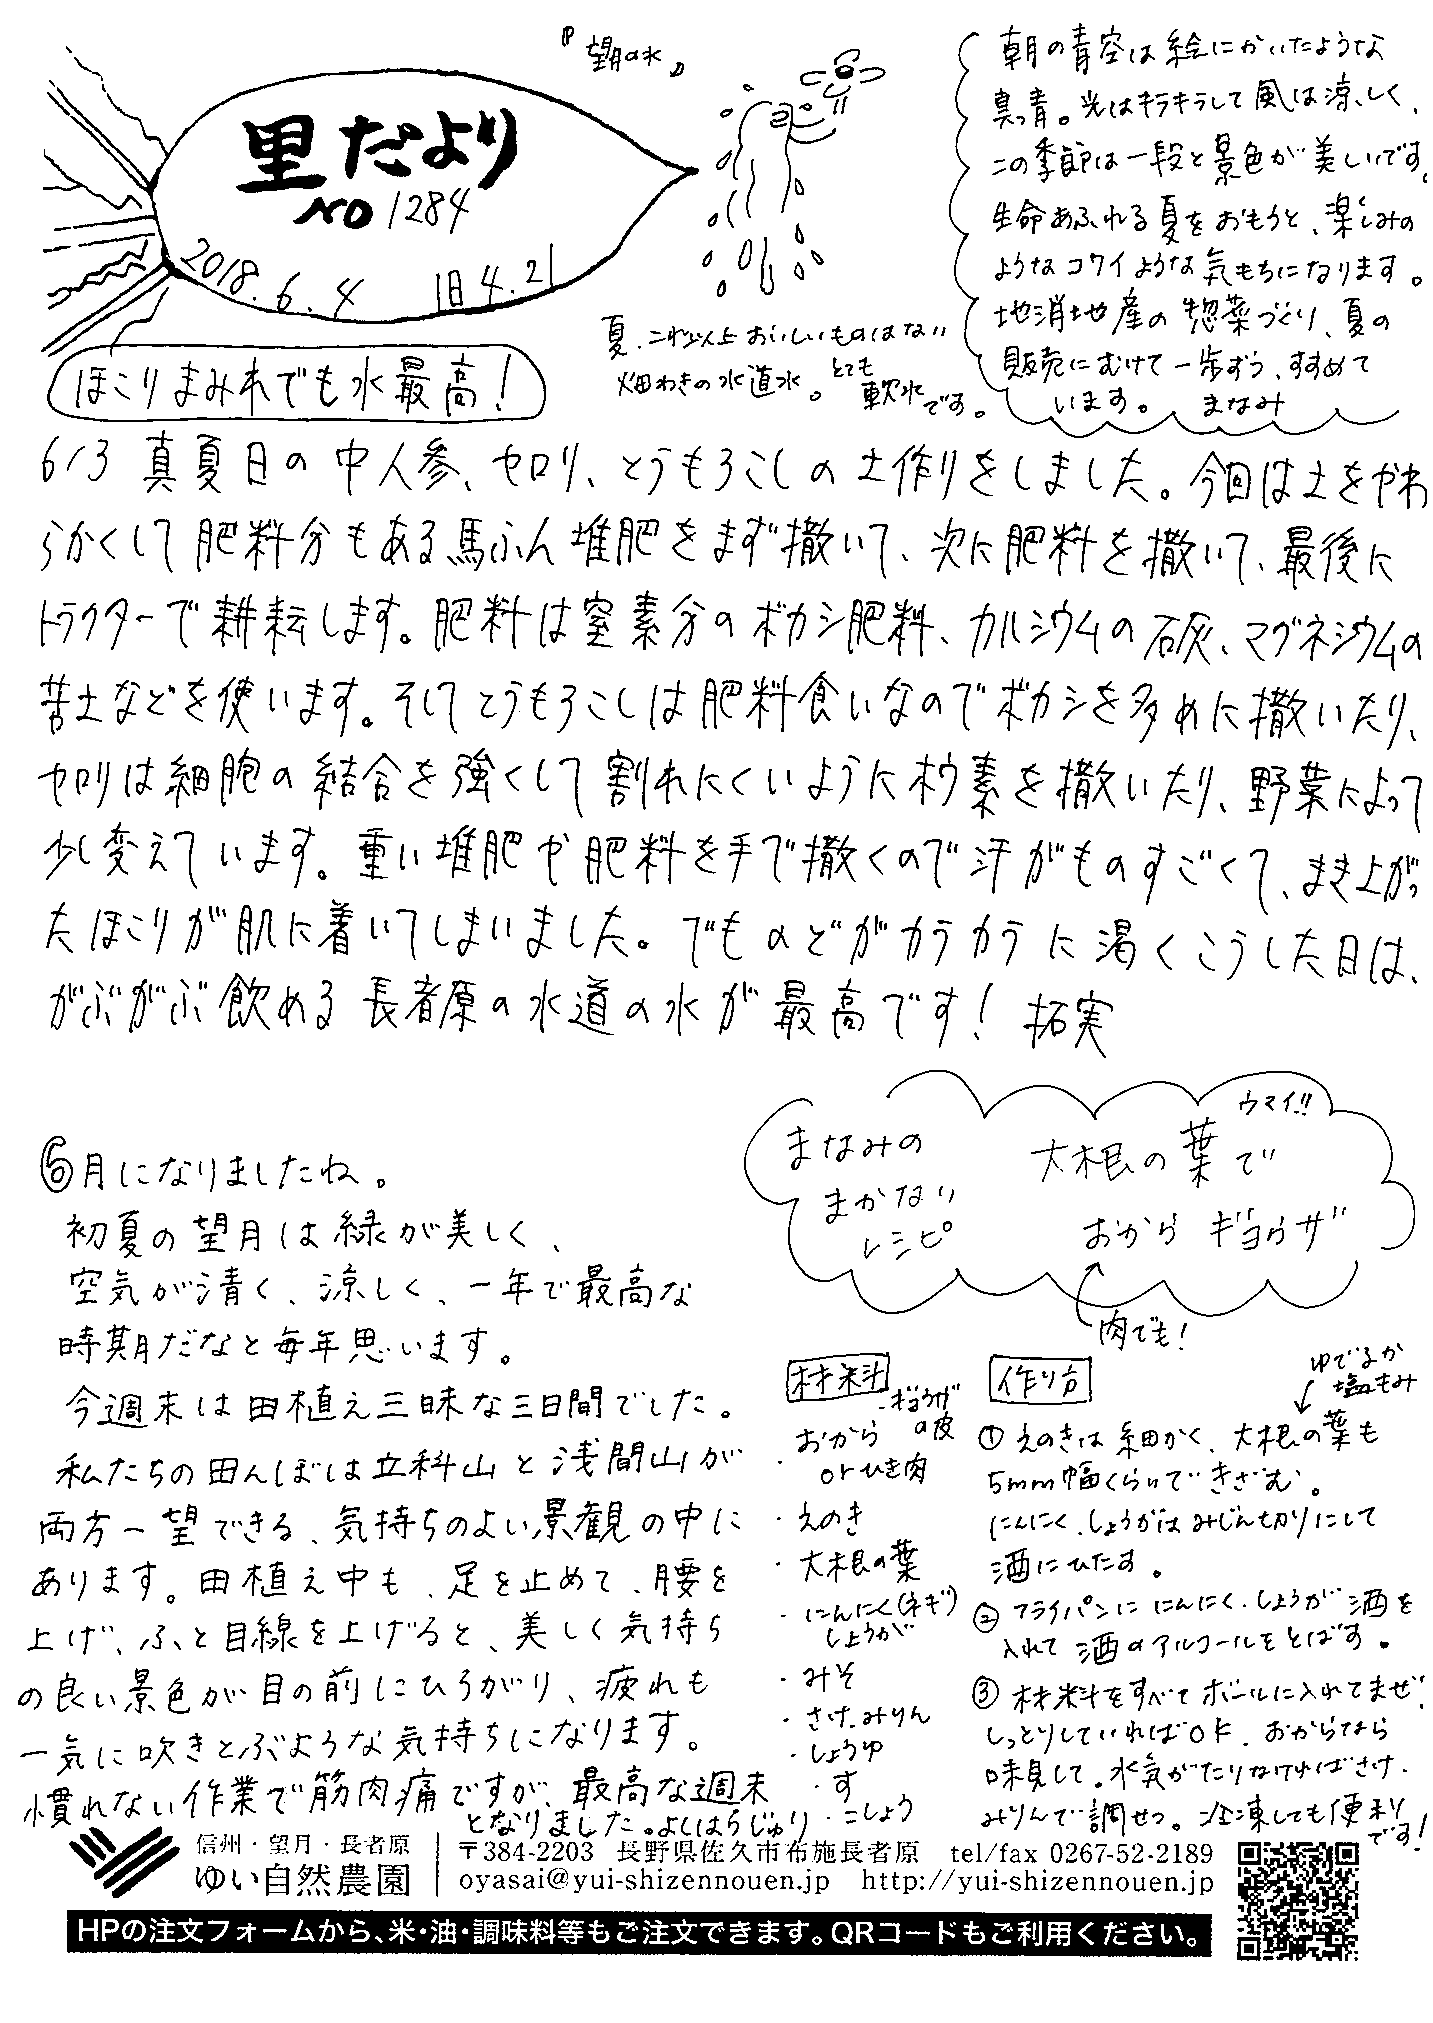 里だより
NO 1284
2018.6.4 旧4.21
『望月の水』
夏、これ以上おいしいものはない
畑わきの水道水。とても
軟水です。
朝の青空は絵にかいたような
真っ青。光はキラキラして風は涼しく、
この季節は一段と景色が美しいです。
生命あふれる夏をおもうと、楽しみの
ようなコワイような気もちになります。
地消地産の惣菜づくり、夏の
販売にむけて一歩ずつ、すすめて
います。 まなみ
ほこりまみれでも水最高!
6/3 真夏日の中人参、セロリ、とうもろこしの土作りをしました。今回は土をやわ
らかくして肥料分もある馬ふん堆肥をまず撒いて、次に肥料を撒いて、最後に
トラクターで耕耘します。肥料は窒素分のボカシ肥料、カルシウムの石灰、マグネシウムの
苦土などを使います。そしてとうもろこしは肥料食いなのでボカシを多めに撒いたり、
セロリは細胞の結合を強くして割れにくいようにホウ素を撒いたり、野菜によって
少し変えています。重い堆肥や肥料を手で撒くので汗がものすごくて、まき上がっ
たほこりが肌に着いてしまいました。でものどがカラカラに渇くこうした日は、
がぶがぶ飲める長者原の水道の水が最高です! 拓実
⑥月になりましたね。
初夏の望月は緑が美しく、
空気が清く、涼しく、一年で最高な
時期だなと毎年思います。
今週末は田植え三昧な三日間でした。
私たちの田んぼは立科山と浅間山が
両方一望できる、気持ちのよい景観の中に
あります。田植え中も、足を止めて、腰を
上げ、ふと目線を上げると、美しく気持ち
の良い景色が目の前にひろがり、疲れも
一気に吹きとぶような気持ちになります。
慣れない作業で筋肉痛ですが、最高な週末
となりました。よしはらじゅり
まなみの
まかない
レシピ
ウマイ!!
大根の葉で
おから ギョウザ
肉でも!
材料
・ギョウザ
の皮
・おから
orひき肉
・えのき
・大根の葉
・にんにく(ネギ)
しょうが
・みそ
・さけ、みりん
・しょうゆ
・す
・こしょう
作り方
ゆでるか
塩もみ
① えのきは細かく、大根の葉も
5mm幅くらいできざむ。
にんにく、しょうがはみじん切りにして
酒にひたす。
② フライパンににんにく、しょうが酒を
入れて酒のアルコールをとばす。
③ 材料をすべてボールに入れてまぜ、
しっとりしていればOK。おからなら
味見して。水気がたりなければさけ、
みりんで調せつ。冷凍しても便利
です!
信州・望月・長者原
ゆい自然農園
〒384-2203 長野県佐久市布施長者原 tel/fax 0267-52-2189
oyasai@yui-shizennouen.jp http://yui-shizennouen.jp
HPの注文フォームから、米・油・調味料等もご注文できます。QRコードもご利用ください。